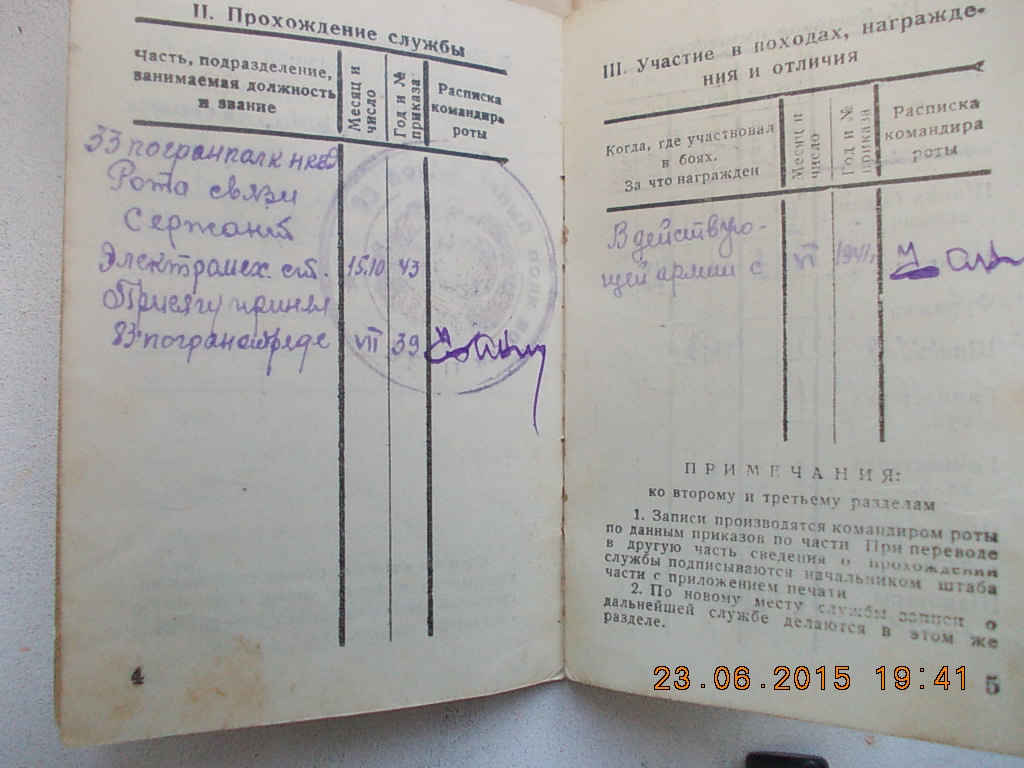 II. Прохождение службы
Часть, подразделение,
занимаемая должность
и звание
Месяц и
число
Год и №
приказа
Расписка
командира
роты
33 погранполк нквд
Рота связи
Сержант
Электромех. ст. 15.10 43
Присягу принял
83 погранотряде VII 39
4
III. Участие в походах, награжде-
ния и отличия
Когда, где участвовал
в боях.
За что награжден
Месяц и
число
Год и №
приказа
Расписка
командира
роты
В действую- VI 1941г
щей армии с
ПРИМЕЧАНИЯ:
ко второму и третьему разделам
1. Записи производятся командиром роты
по данным приказов по части При переводе
в другую часть сведения о прохождении
службы подписываются начальником штаба
части с приложением печати
2. По новому месту службы записи о
дальнейшей службе делаются в этом же
разделе.
23.06.2015 19:41
5